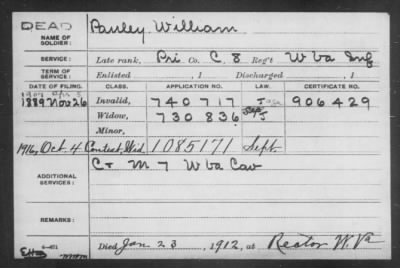 DEAD
NAME OF SOLDIER: Pauley, William
SERVICE: Late rank, Pri Co. C. 8 Reg't W Va Inf
TERM OF SERVICE: Enlisted , 1 Discharged , 1
DATE OF FILING. CLASS. APPLICATION NO. LAW. CERTIFICATE NO.
1889 Nov 26 Invalid, 740717 906429
Widow, 730836
Minor,
1916, Oct 4 Contest, Wid 1085171 Sept.
ADDITIONAL SERVICES: C & M 7 W Va Cav
REMARKS:
Died Jan 23, 1912, at Rector W. Va